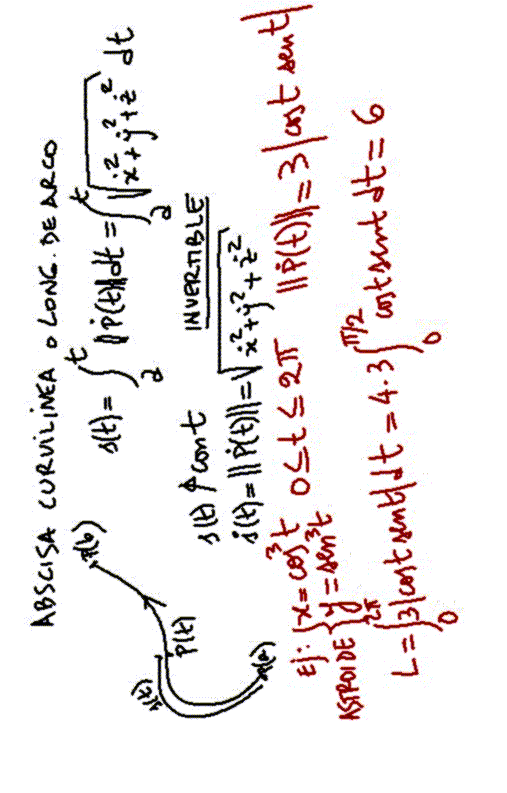 ABSCISA CURVILÍNEA o LONG. DE ARCO
s(t) = ∫ₐᵗ ||Ṗ(t)|| dt = ∫ₐᵗ √(ẋ² + ẏ² + ż²) dt
P(b)
P(t)
s(t)
P(a)
s(t) ↑ cont INVERTIBLE
ṡ(t) = ||Ṗ(t)|| = √(ẋ² + ẏ² + ż²)
Ej: { x = cos³t
y = sen³t 0 ≤ t ≤ 2π ||Ṗ(t)|| = 3 |cost sent|
ASTROIDE
L = ∫₀^2π 3|cost sent| dt = 4·3 ∫₀^π/2 cost sent dt = 6